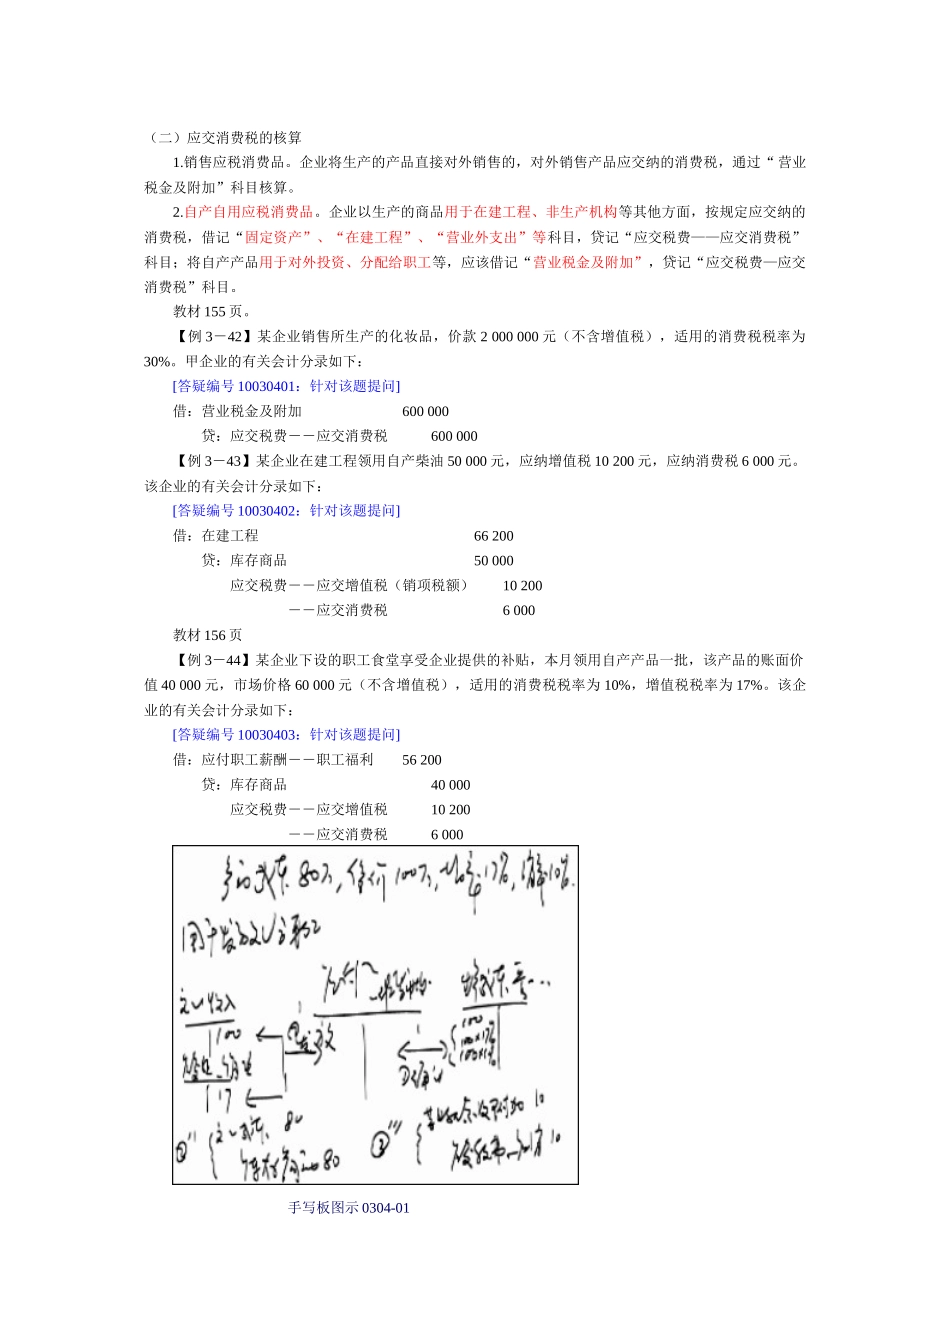 （二）应交消费税的核算
1.销售应税消费品。企业将生产的产品直接对外销售的，对外销售产品应交纳的消费税，通过“ 营业
税金及附加”科目核算。
2.自产自用应税消费品。企业以生产的商品用于在建工程、非生产机构等其他方面，按规定应交纳的
消费税，借记“固定资产”、“在建工程”、“营业外支出”等科目，贷记“应交税费——应交消费税”
科目；将自产产品用于对外投资、分配给职工等，应该借记“营业税金及附加”，贷记“应交税费—应交
消费税”科目。
教材 155 页。
【例 3－42】某企业销售所生产的化妆品，价款 2 000 000 元（不含增值税），适用的消费税税率为
30%。甲企业的有关会计分录如下：
[答疑编号 10030401：针对该题提问]
借：营业税金及附加 600 000
贷：应交税费－－应交消费税 600 000
【例 3－43】某企业在建工程领用自产柴油 50 000 元，应纳增值税 10 200 元，应纳消费税 6 000 元。
该企业的有关会计分录如下：
[答疑编号 10030402：针对该题提问]
借：在建工程 66 200
贷：库存商品 50 000
应交税费－－应交增值税（销项税额） 10 200
－－应交消费税 6 000
教材 156 页
【例 3－44】某企业下设的职工食堂享受企业提供的补贴，本月领用自产产品一批，该产品的账面价
值 40 000 元，市场价格 60 000 元（不含增值税），适用的消费税税率为 10%，增值税税率为 17%。该企
业的有关会计分录如下：
[答疑编号 10030403：针对该题提问]
借：应付职工薪酬－－职工福利 56 200
贷：库存商品 40 000
应交税费－－应交增值税 10 200
－－应交消费税 6 000
手写板图示 0304-01